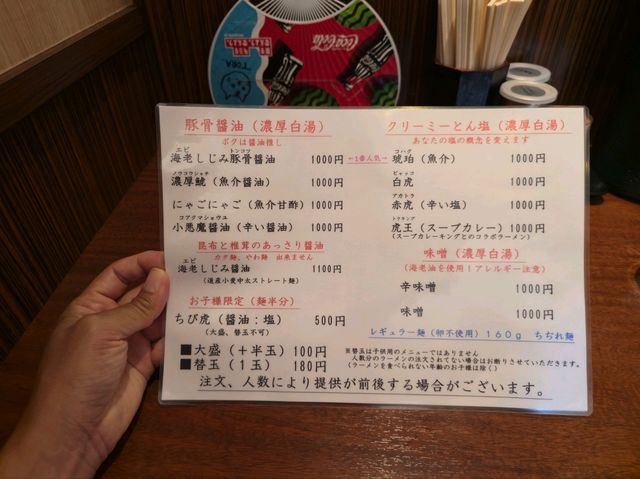 Coca-Cola
TORA
豚骨醤油(濃厚白湯)
ボクは醤油推し
エビ トンコツ
海老しじみ豚骨醤油 1000円
←1番人気→
ノウコウシャチ
濃厚鯱(魚介醤油) 1000円
にゃごにゃご(魚介甘酢) 1000円
コアクマショウユ
小悪魔醤油(辛い醤油) 1000円
昆布と椎茸のあっさり醤油
カタ麺、やわ麺 出来ません
エビ
海老しじみ醤油 1100円
(道産小麦中太ストレート麺)
お子様限定(麺半分)
ちび虎(醤油:塩) 500円
(大盛、替玉不可)
■大盛(+半玉)100円
■替玉(1玉) 180円
クリーミーとん塩(濃厚白湯)
あなたの塩の概念を変えます
コハク
琥珀(魚介) 1000円
ビャッコ
白虎 1000円
アカトラ
赤虎(辛い塩) 1000円
トラキング
虎王(スープカレー) 1000円
(スープカレーキングとのコラボラーメン)
味噌(濃厚白湯)
(海老油を使用!アレルギー注意)
辛味噌 1000円
味噌 1000円
レギュラー麺(卵不使用)160g ちぢれ麺
※替玉は子供用のメニューではありません
人数分のラーメンの注文されてない場合はお断りさせていただきます。
(ラーメンを食べられない年齢のお子様は除く)
注文、人数により提供が前後する場合がございます。